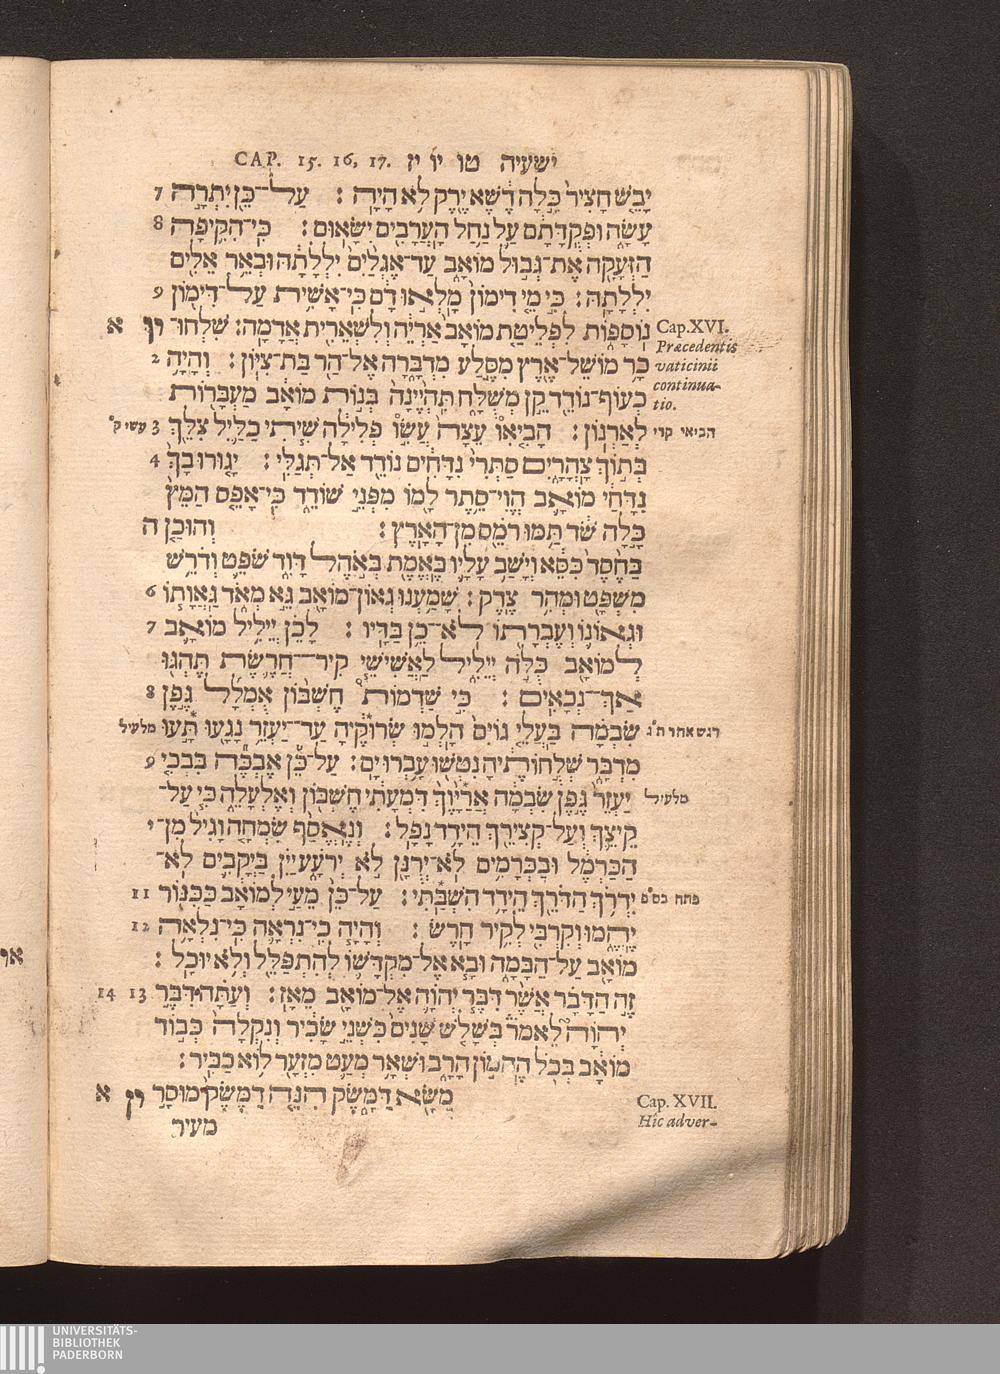 CAP. 15. 16, 17. ישעיה טו יו יז
יָבֵשׁ חָצִיר כָּלָה דֶשֶׁא יֶרֶק לֹא הָיָה׃ עַל־כֵּן יִתְרָה 7
עָשָׂה וּפְקֻדָּתָם עַל נַחַל הָעֲרָבִים יִשָּׂאוּם׃ כִּי־הִקִּיפָה 8
הַזְּעָקָה אֶת־גְּבוּל מוֹאָב עַד־אֶגְלַיִם יִלְלָתָהּ וּבְאֵר אֵלִים
יִלְלָתָהּ׃ כִּי מֵי דִימוֹן מָלְאוּ דָם כִּי־אָשִׁית עַל־דִּימוֹן 9
נוֹסָפוֹת לִפְלֵיטַת מוֹאָב אַרְיֵה וְלִשְׁאֵרִית אֲדָמָה׃ שִׁלְחוּ־ יו א
Cap.XVI.
Præcedentis
vaticinii
continua-
tio.
כַר מוֹשֵׁל־אֶרֶץ מִסֶּלַע מִדְבָּרָה אֶל־הַר בַּת־צִיּוֹן׃ וְהָיָה 2
כְעוֹף־נוֹדֵד קֵן מְשֻׁלָּח תִּהְיֶינָה בְּנוֹת מוֹאָב מַעְבָּרוֹת
לְאַרְנוֹן׃ הָבִיאוּ עֵצָה עֲשׂוּ פְלִילָה שִׁיתִי כַלַּיִל צִלֵּךְ 3
הביאי קרי
עשי ק'
בְּתוֹךְ צָהֳרָיִם סַתְּרִי נִדָּחִים נוֹדֵד אַל־תְּגַלִּי׃ יָגוּרוּ בָךְ 4
נִדָּחַי מוֹאָב הֱוִי־סֵתֶר לָמוֹ מִפְּנֵי שׁוֹדֵד כִּי־אָפֵס הַמֵּץ
כָּלָה שֹׁד תַּמּוּ רֹמֵס מִן־הָאָרֶץ׃ וְהוּכַן ה
בַּחֶסֶד כִּסֵּא וְיָשַׁב עָלָיו בֶּאֱמֶת בְּאֹהֶל דָּוִד שֹׁפֵט וְדֹרֵשׁ
מִשְׁפָּט וּמְהִר צֶדֶק׃ שָׁמַעְנוּ גְאוֹן־מוֹאָב גֵּא מְאֹד גַּאֲוָתוֹ 6
וּגְאוֹנוֹ וְעֶבְרָתוֹ לֹא־כֵן בַּדָּיו׃ לָכֵן יְיֵלִיל מוֹאָב 7
לְמוֹאָב כֻּלֹּה יְיֵלִיל לַאֲשִׁישֵׁי קִיר־חֲרֶשֶׂת תֶּהְגּוּ
אַךְ־נְכָאִים׃ כִּי שַׁדְמוֹת חֶשְׁבּוֹן אֻמְלָל גֶּפֶן 8
שִׂבְמָה בַּעֲלֵי גוֹיִם הָלְמוּ שְׂרוּקֶּיהָ עַד־יַעְזֵר נָגָעוּ תָּעוּ
מלעיל
מִדְבָּר שְׁלֻחוֹתֶיהָ נִטְּשׁוּ עָבְרוּ יָם׃ עַל־כֵּן אֶבְכֶּה בִּבְכִי 9
יַעְזֵר גֶּפֶן שִׂבְמָה אֲרַיָּוֶךְ דִּמְעָתִי חֶשְׁבּוֹן וְאֶלְעָלֵה כִּי עַל־
מלעיל
קֵיצֵךְ וְעַל־קְצִירֵךְ הֵידָד נָפָל׃ וְנֶאֱסַף שִׂמְחָה וָגִיל מִן־ י
הַכַּרְמֶל וּבַכְּרָמִים לֹא־יְרֻנָּן לֹא יְרֹעָע יַיִן בַּיְקָבִים לֹא־
יִדְרֹךְ הַדֹּרֵךְ הֵידָד הִשְׁבַּתִּי׃ עַל־כֵּן מֵעַי לְמוֹאָב כַּכִּנּוֹר 11
פתח בס"פ
יֶהֱמוּ וְקִרְבִּי לְקִיר חָרֶשׂ׃ וְהָיָה כִי־נִרְאָה כִּי־נִלְאָה 12
מוֹאָב עַל־הַבָּמָה וּבָא אֶל־מִקְדָּשׁוֹ לְהִתְפַּלֵּל וְלֹא יוּכָל׃
זֶה הַדָּבָר אֲשֶׁר דִּבֶּר יְהוָה אֶל־מוֹאָב מֵאָז׃ וְעַתָּה דִּבֶּר 13 14
יְהוָה לֵאמֹר בְּשָׁלֹשׁ שָׁנִים כִּשְׁנֵי שָׂכִיר וְנִקְלָה כְּבוֹד
מוֹאָב בְּכֹל הֶהָמוֹן הָרָב וּשְׁאָר מְעַט מִזְעָר לוֹא כַבִּיר׃
מַשָּׂא דַּמָּשֶׂק הִנֵּה דַמֶּשֶׂק מוּסָר יז א
Cap. XVII.
Hîc adver-
מעיר
UNIVERSITÄTS-
BIBLIOTHEK
PADERBORN